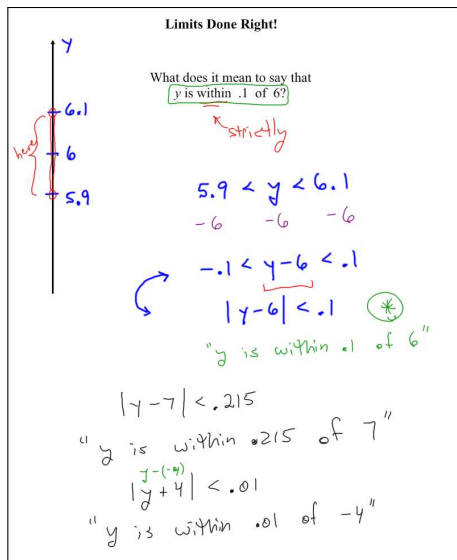 Limits Done Right!
y
What does it mean to say that
y is within .1 of 6?
strictly
6.1
here
6
5.9
5.9 < y < 6.1
-6 -6 -6
-.1 < y-6 < .1
|y-6| < .1 *
"y is within .1 of 6"
|y-7| < .215
"y is within .215 of 7"
y-(-4)
|y+4| < .01
"y is within .01 of -4"